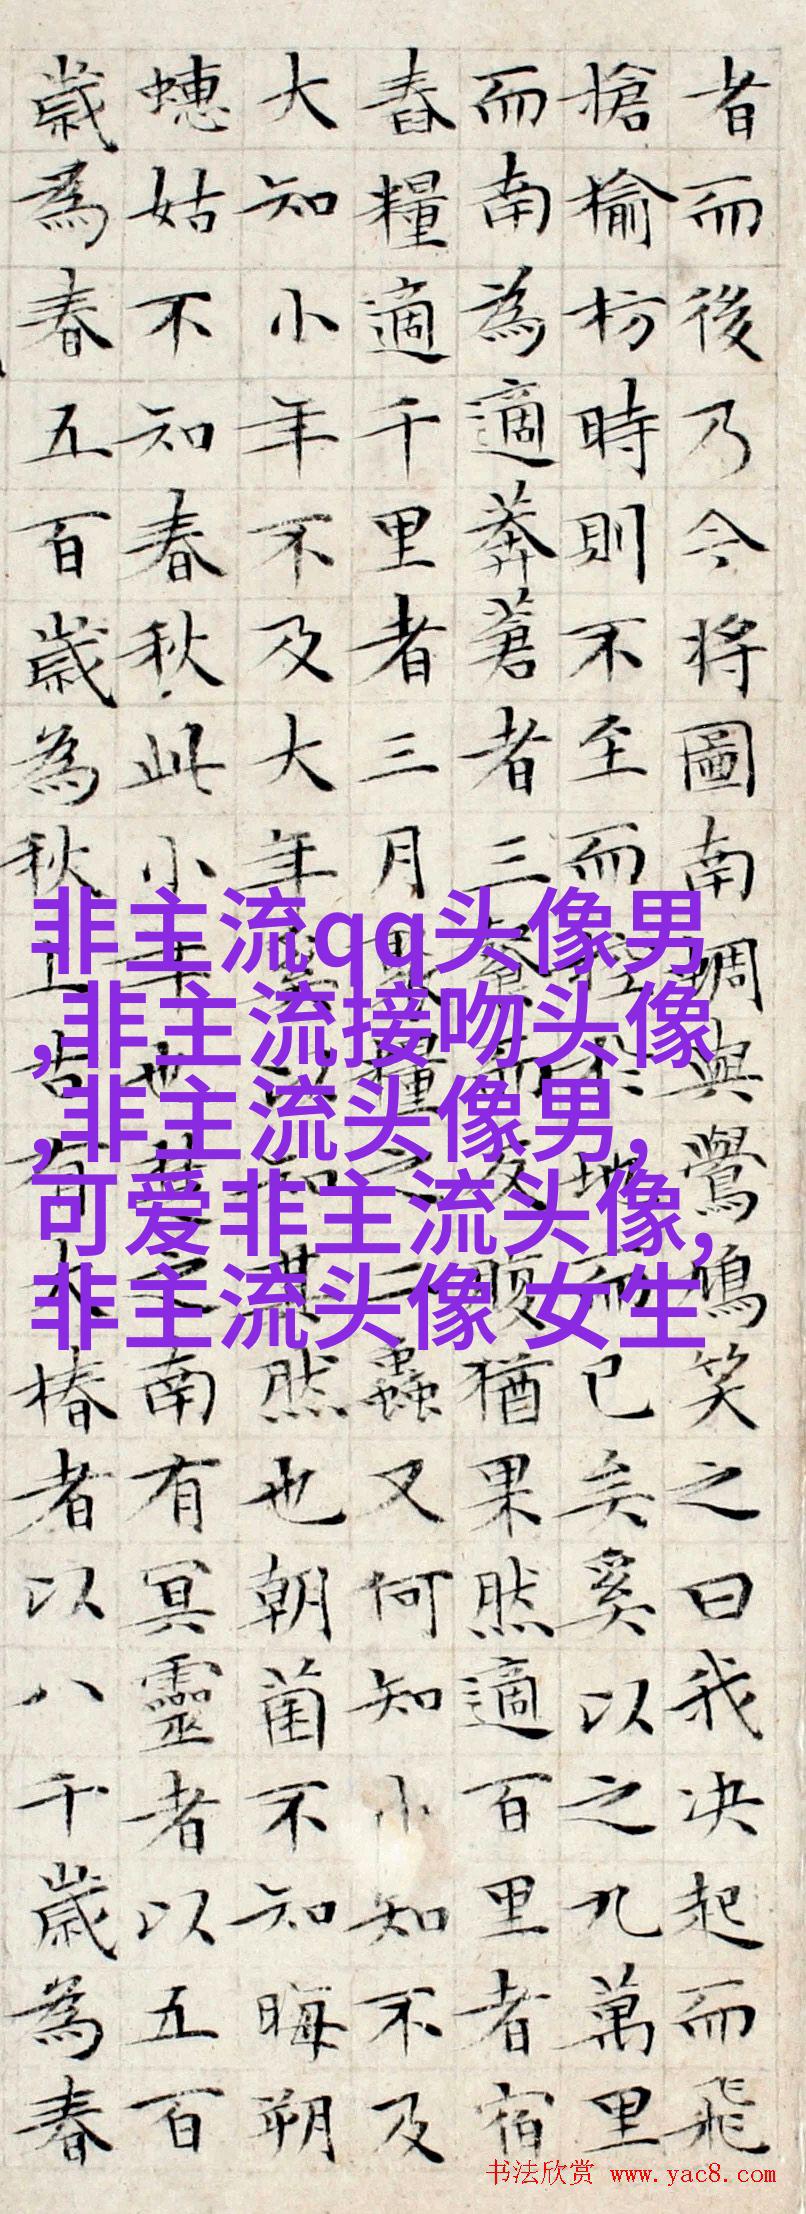 者而後乃今将圖南蜩與鷽鳩笑之曰我决起而飛
搶榆枋時則不至而控於地而已矣奚以之九萬里
而南為適莽蒼者三飡而反腹猶果然適百里者宿
舂糧適千里者三月聚糧之二蟲又何知小知不及
大知小年不及大年奚以知其然也朝菌不知晦朔
蟪姑不知春秋此小年也楚之南有冥靈者以五百
歲為春五百歲為秋上古有大椿者以八千歲為春
非主流qq头像男
,非主流接吻头像
,非主流头像男,
可爱非主流头像,
非主流头像 女生
书法欣赏 www.yac8.com